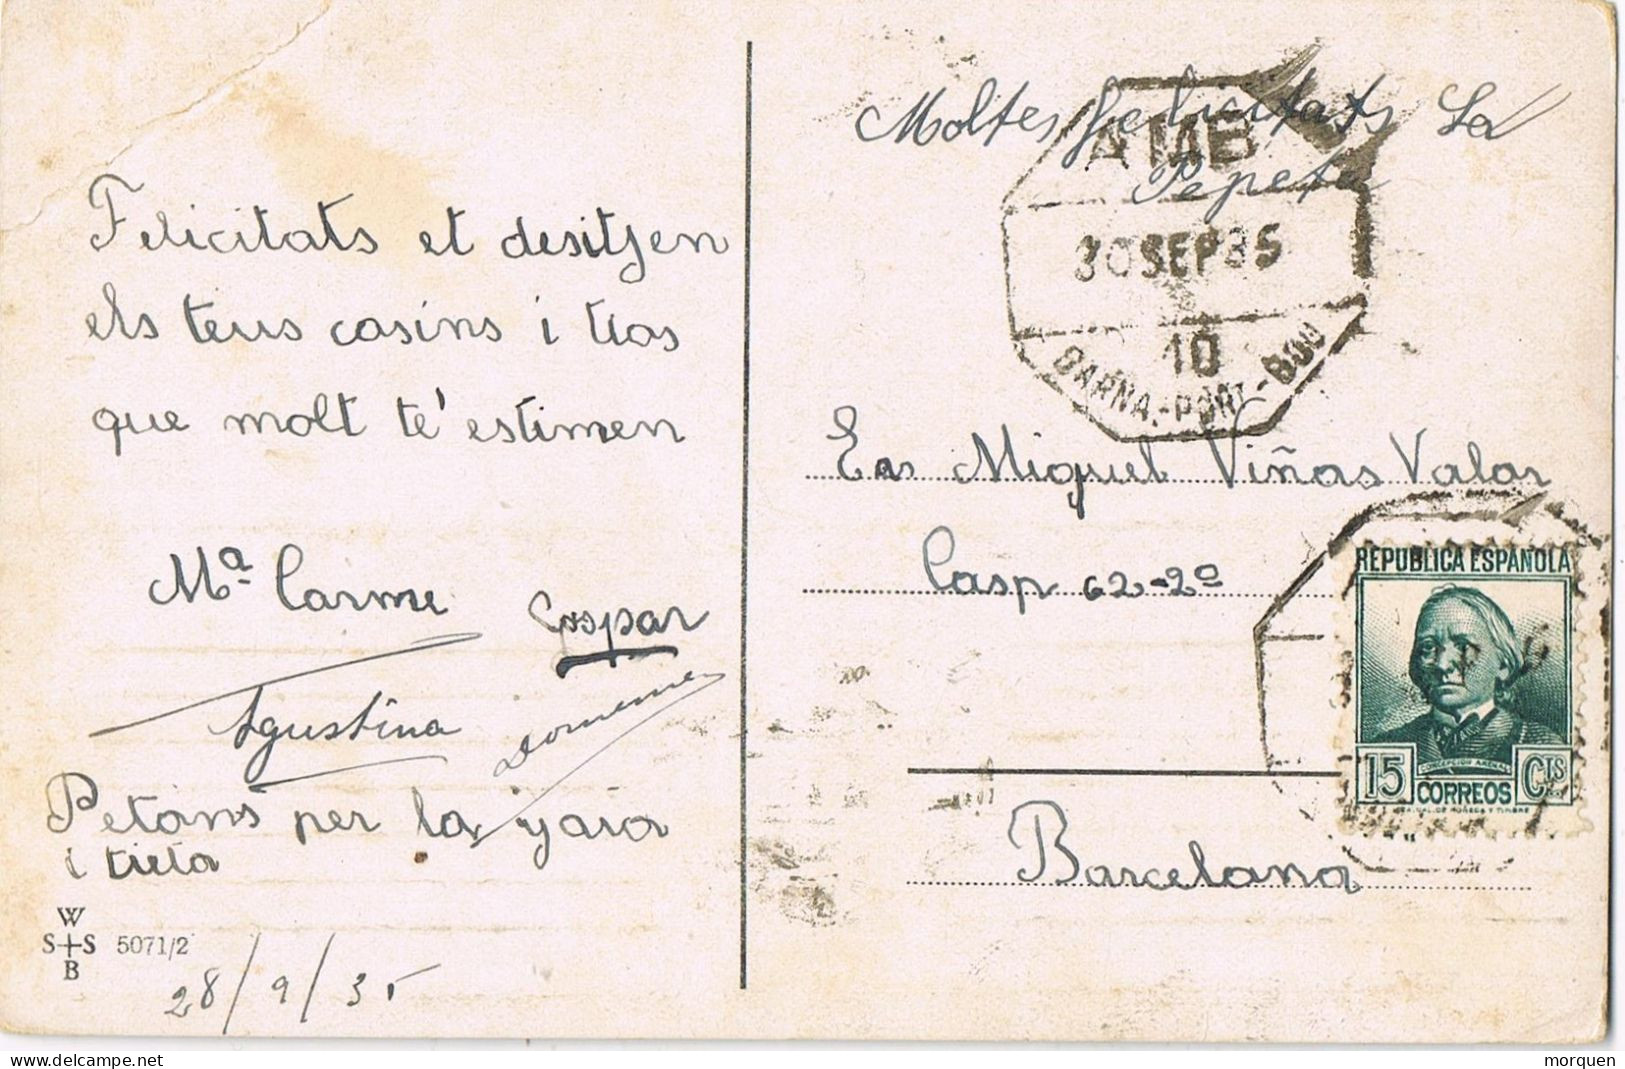 Felicitats et desitjen
els teus cosins i tios
que molt te' estimen
Mª Carme
Gaspar
Agustina
Petons per la yaia
i tieta
W
S+S 5071/2
B
28/9/35
Moltes felicitats La
Pepeta
AMB
30 SEP 35
10
BARNA.-PORT-BOU
En Miquel Viñas Valor
Casp 62-2º
Barcelona
REPUBLICA ESPAÑOLA
CONCEPCION ARENAL
15 CORREOS CTS
morquen